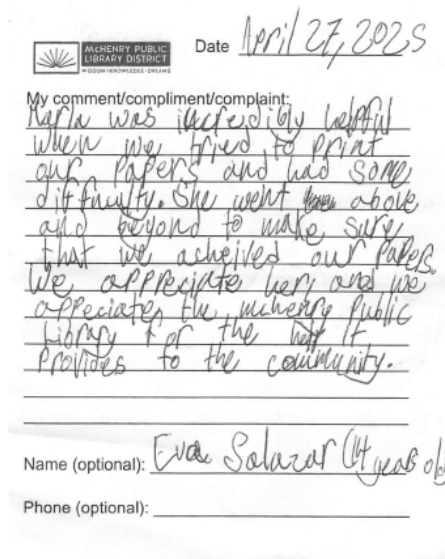 McHENRY PUBLIC
LIBRARY DISTRICT
WISDOM•KNOWLEDGE•DREAMS
Date April 27, 2025
My comment/compliment/complaint:
Karla was incredibly helpful
when we tried to print
our papers and had some
difficulty. She went above
and beyond to make sure
that we acheived our papers.
We appreciate her, and we
appeciate the mchenry public
Library for the help it
provides to the community.
Name (optional): Eva Salazar (14 years old
Phone (optional):